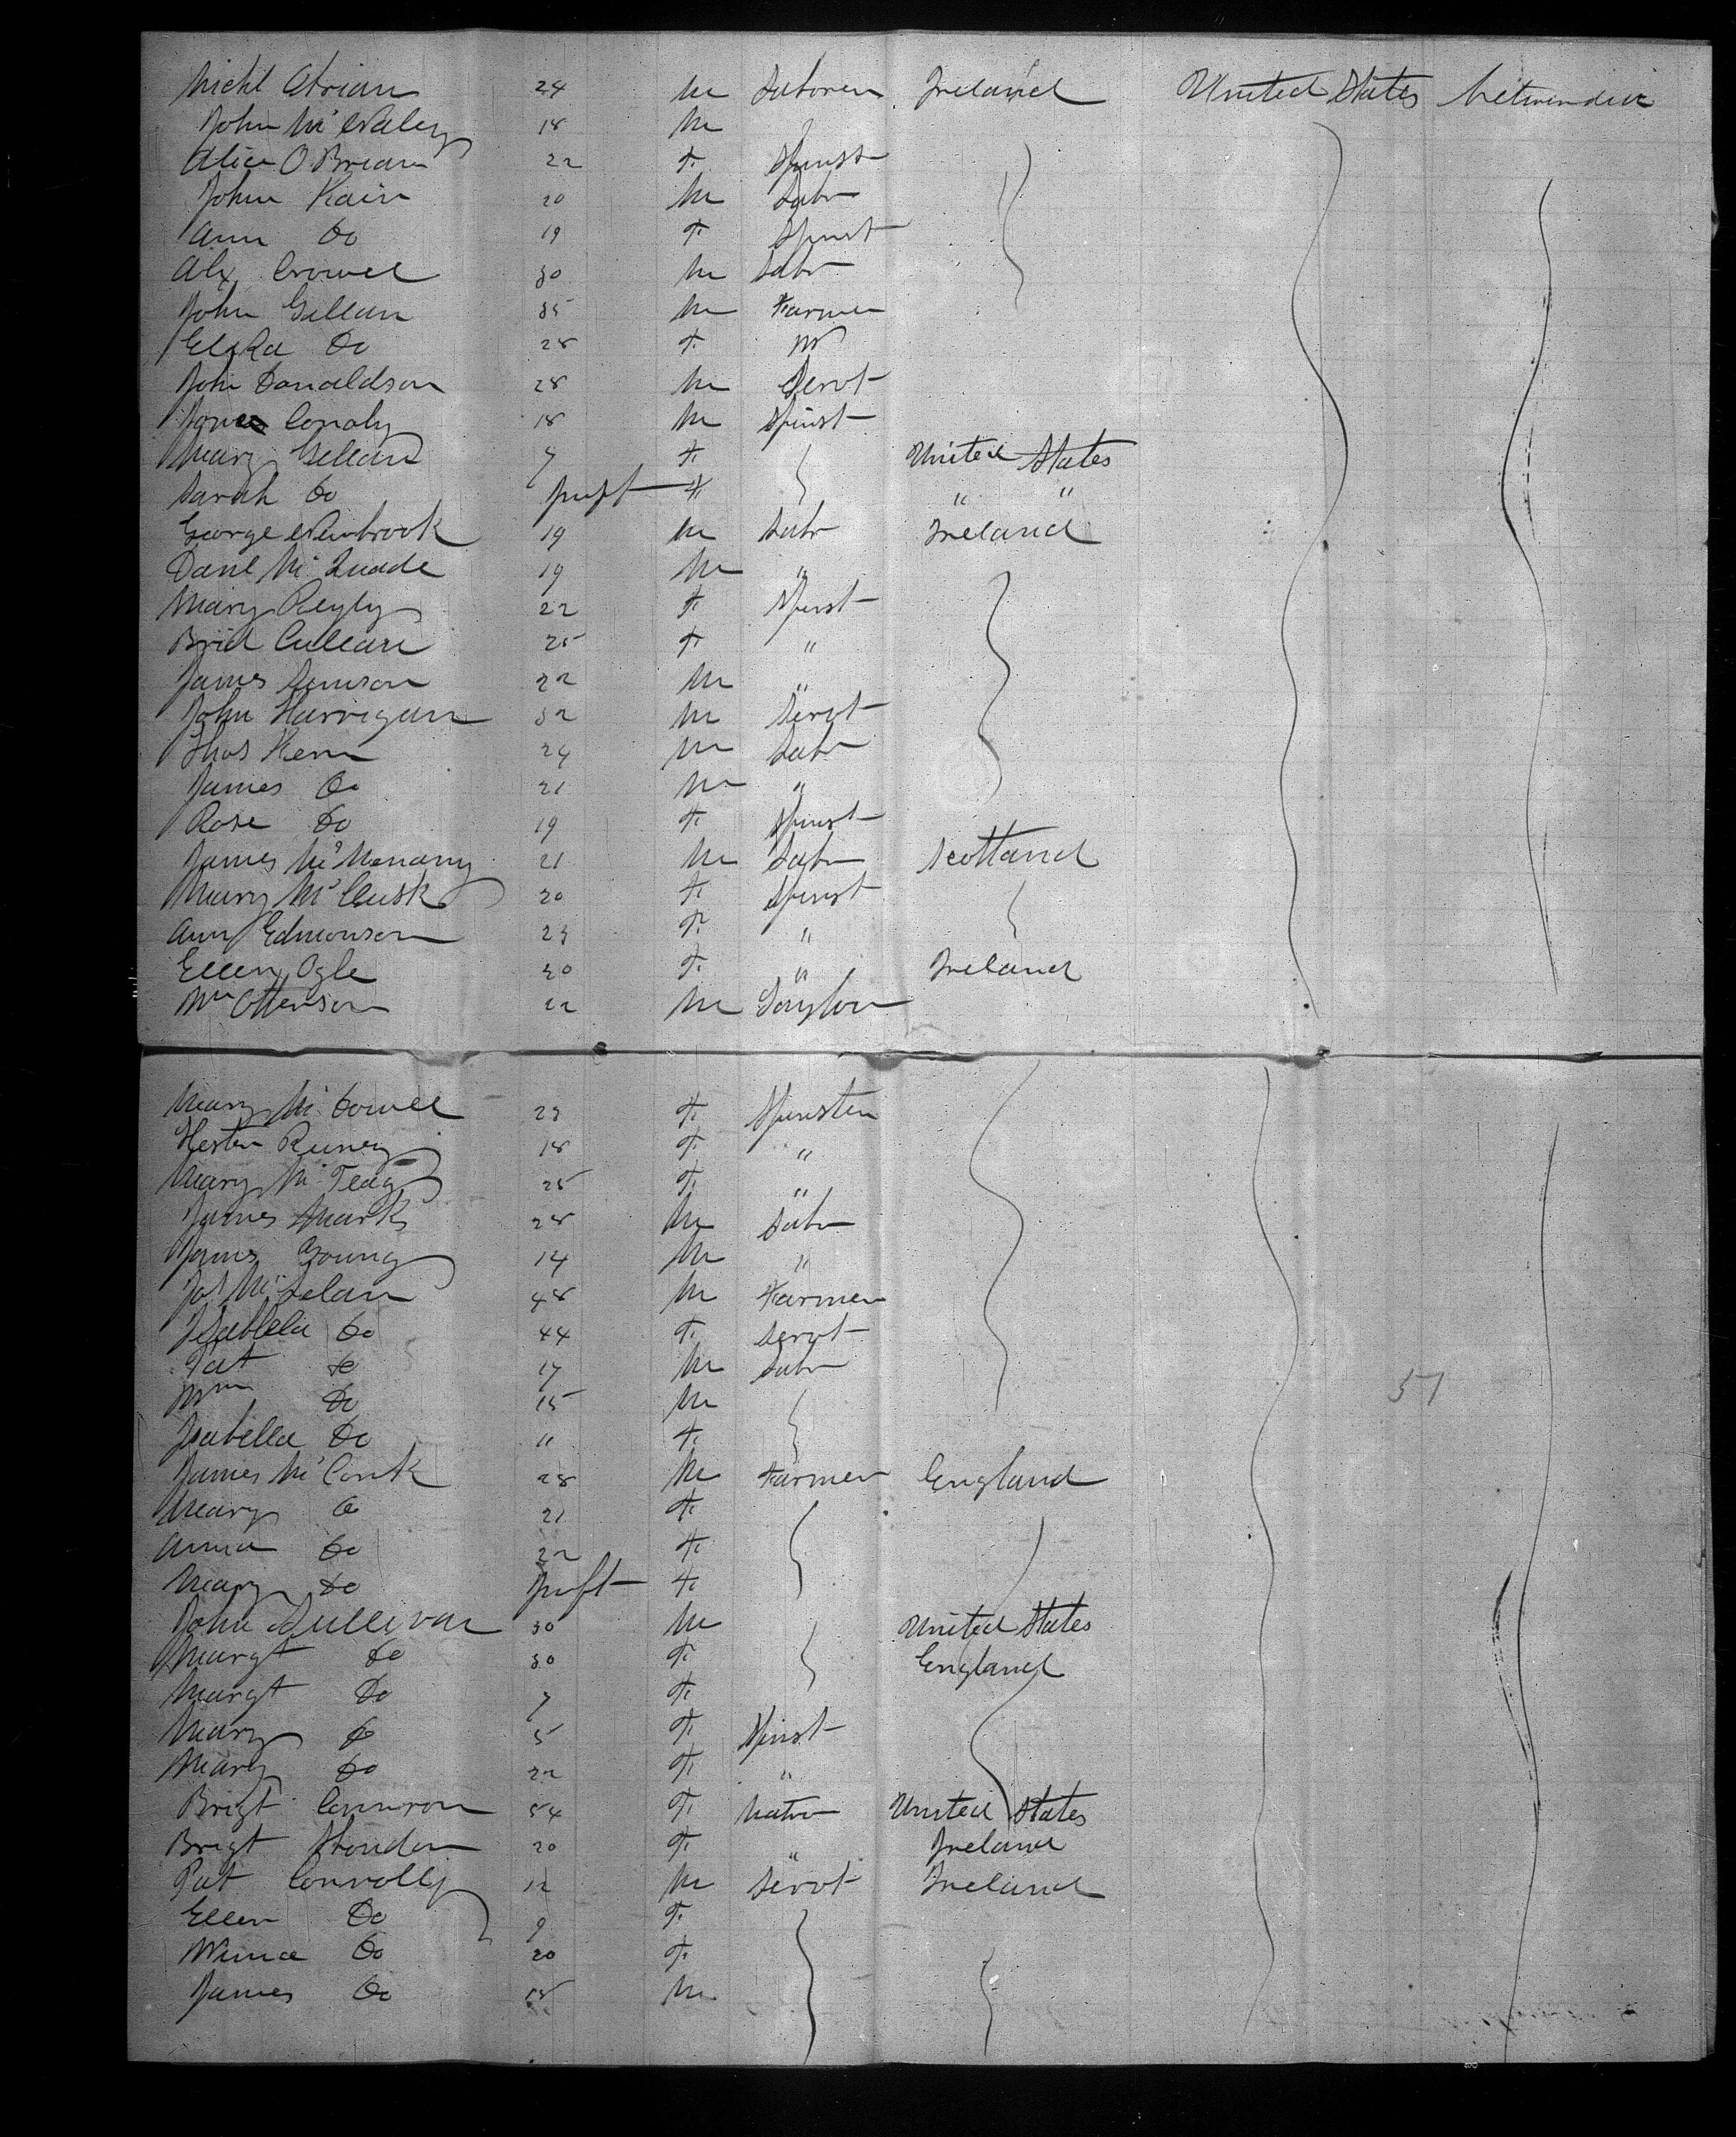 Michl Abrian 24 M Laborer Ireland United States
John Mc 18 M
Alice O Brian 22 F. Spinst
John Kain 20 M Labr
Ann Do 19 F Spinst
Alx Crowel 30 M Labr
John Gellan 35 M Farmer
Do 28 F. W
John Donaldson 28 M Servt
Conoly 18 M Spinst
Mary Gellan 7 F. United States
Sarah Do Inft F " "
George Newbrook 19 M Labr Ireland
Danl Mc Quade 19 M "
Mary Reyly 22 F. Spinst
Brid Cullan 25 F. "
James 22 M "
John Harrigan 32 M Servt
Thos Kern 24 M Labr
James Do 21 M "
Rose Do 19 F. Spinst
James Mc Menamy 21 M Labr Scotland
Mary Mc Cusk 20 F. Spinst
Ann Edmonson 23 F. "
Ellen Ogle 20 F. " Ireland
Wm Ottenson 22 M Taylor
Mary Mc Dowel 23 F. Spinster
Hester Runey 18 F. "
Mary Mc Teag 25 F. "
James Mark 28 M Labr
James Young 14 M "
Jas Mc 48 M Farmer
Isabbela Do 44 F. Servt
Pat Do 17 M Labr
Wm Do 15 M
Isabella Do 11 F.
James Mc 28 M Farmer England
Mary Do 21 F.
Anna Do 22 F.
Mary Do Inft F
John Sullivan 30 M United States
Margt Do 30 F. England
Margt Do 7 F.
Mary Do 5 F. Spinst
Mary Do 22 F. "
Brigt 54 F. Matro United States
Brigt 20 F. " Ireland
Pat Connolly 12 M Servt Ireland
Ellen Do 9 F.
Do 20 F.
James Do 18 M
51